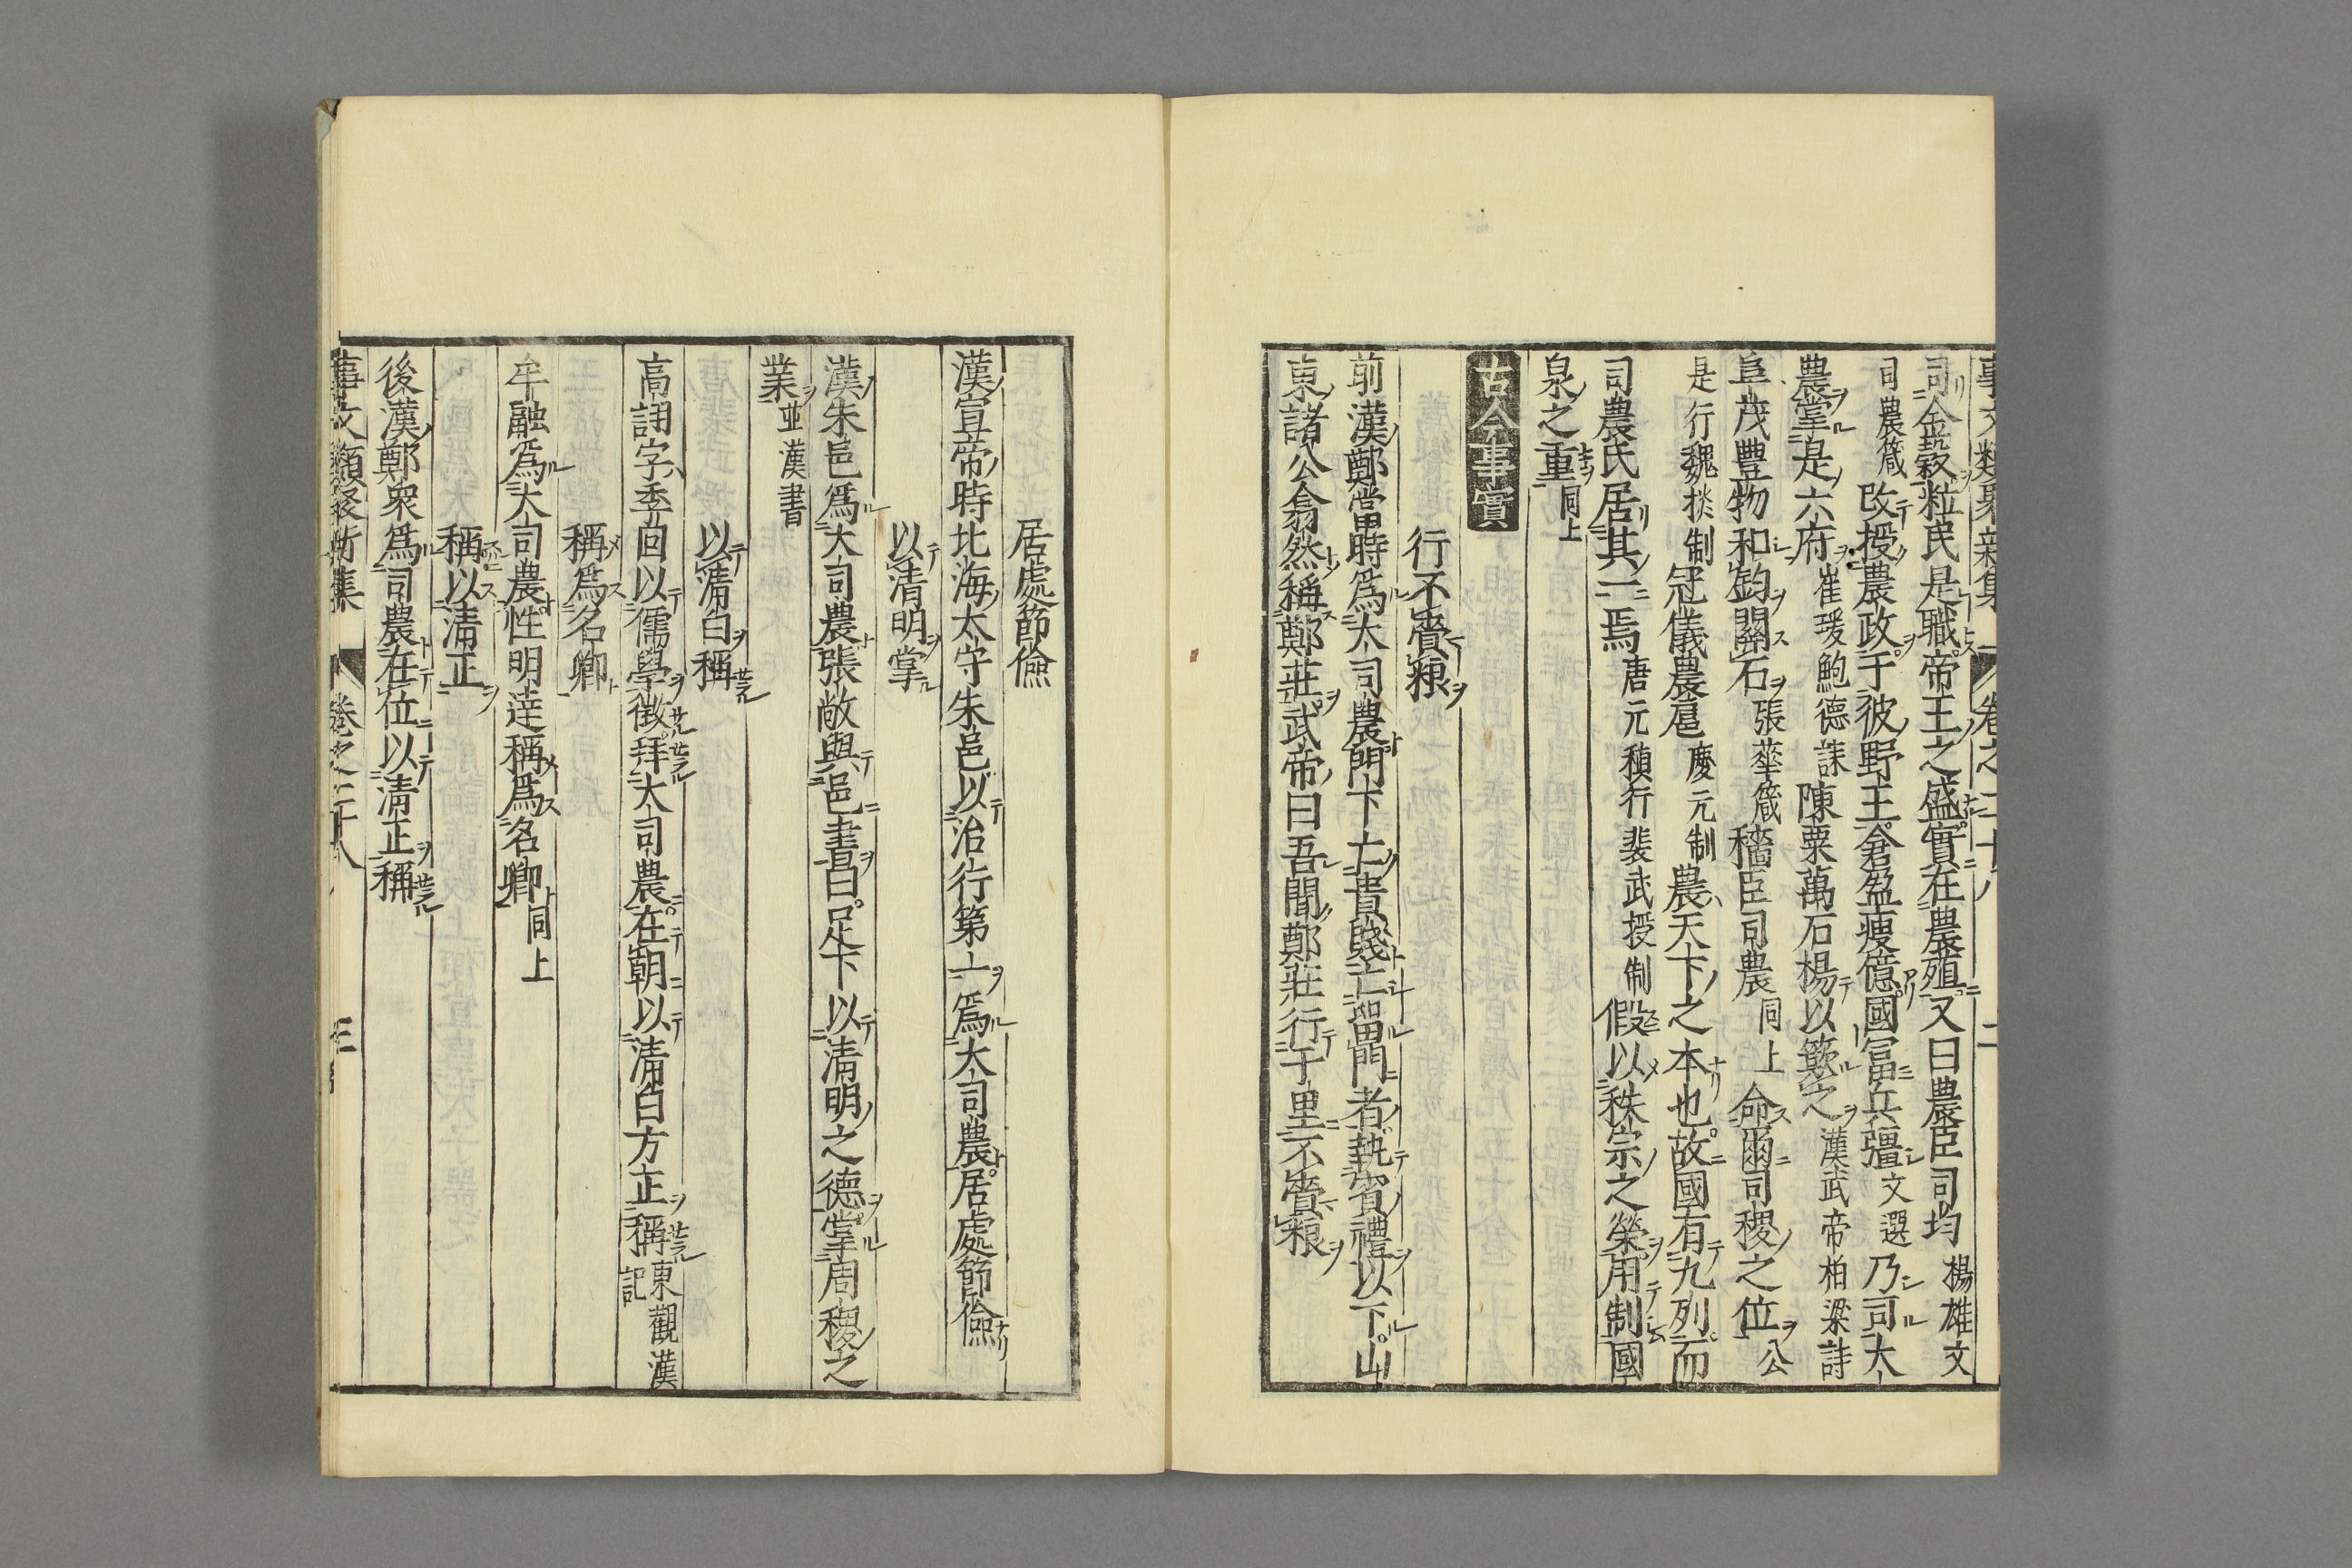 事文類聚新集 卷之二十八 二
司金穀粒民是職帝王之盛實在農殖又曰農臣司均楊雄文
司農箴改授農政于彼野王倉盈庾億國冨兵彊文選乃司大
農掌是六府崔瑗鮑德誄陳粟萬石楊以簸之漢武帝柏梁詩
阜茂豊物和鈞關石張華箴穡臣司農同上命爾司稷之位公
是行魏掞制冠儀農扈慶元制農天下之本也故國有九列而
司農氏居其一焉唐元稹行裴武授制假以秩宗之榮用制國
泉之重同上
古今事實
行不賫粮
前漢鄭當時爲大司農門下士貴賤亡留門者執賓禮以下山
東諸公翕然稱鄭莊武帝曰吾聞鄭莊行千里不賫粮
居處節儉
漢宣帝時北海太守朱邑以治行第一爲大司農居處節儉
以清明掌
漢朱邑爲大司農張敞與邑書曰足下以清明之德掌周稷之
業並漢書
以清白稱
高詡字季回以儒學徵拜大司農在朝以清白方正稱東觀漢記
稱爲名卿
牟融爲大司農性明達稱爲名卿同上
稱以清正
後漢鄭衆爲司農在位以清正稱
事文類聚新集 卷之二十八 三